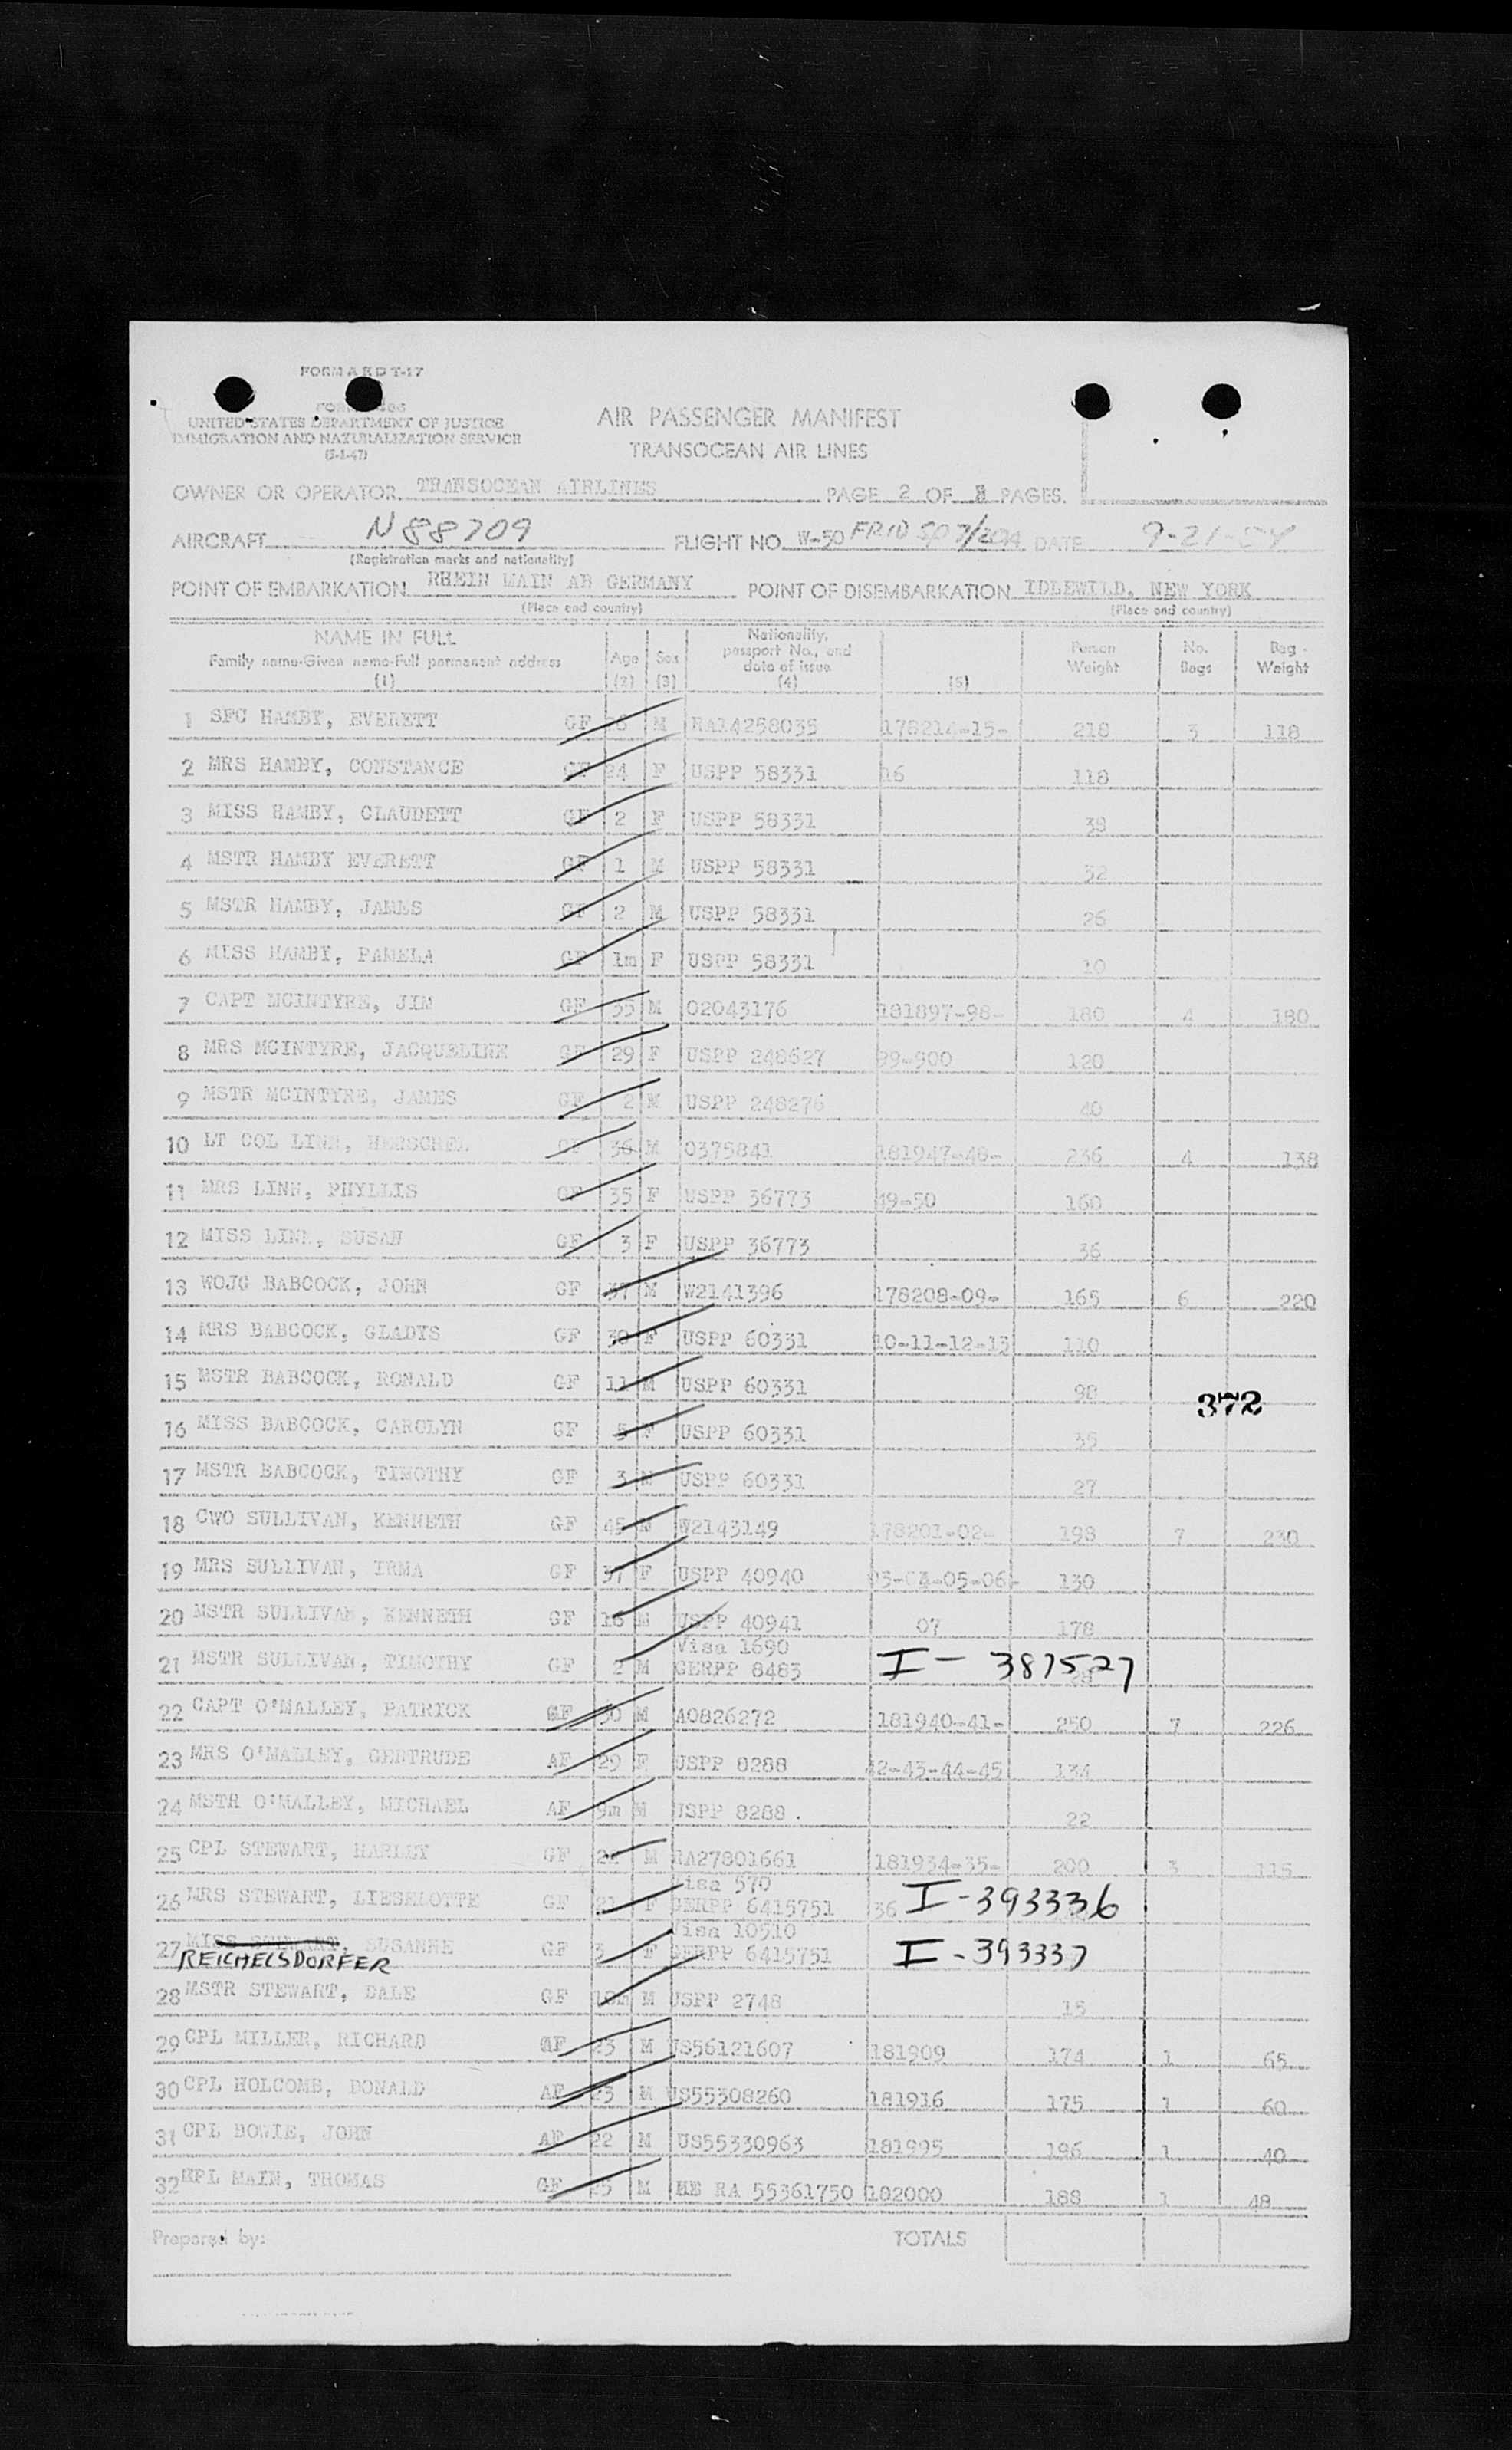 FORM A R D T-17
UNITED STATES DEPARTMENT OF JUSTICE
IMMIGRATION AND NATURALIZATION SERVICE
(5-1-47)
AIR PASSENGER MANIFEST
TRANSOCEAN AIR LINES
OWNER OR OPERATOR TRANSOCEAN AIRLINES PAGE 2 OF PAGES.
AIRCRAFT N88709 FLIGHT NO. W-50 DATE 9-21-54
(Registration marks and nationality)
POINT OF EMBARKATION RHEIN MAIN AB GERMANY POINT OF DISEMBARKATION IDLEWILD, NEW YORK
(Place and country) (Place and country)
NAME IN FULL
Family name-Given name-Full permanent address
(1)
Age
(2)
Sex
(3)
Nationality,
passport No., and
date of issue
(4)
(5)
Person
Weight
No.
Bags
Bag
Weight
1 SFC HAMBY, EVERETT GF M RA14258035 178214-15- 218 3 118
2 MRS HAMBY, CONSTANCE GF 24 F USPP 58331 16 118
3 MISS HAMBY, CLAUDETT GF 2 F USPP 58331 38
4 MSTR HAMBY EVERETT GF 1 M USPP 58331 32
5 MSTR HAMBY, JAMES GF 2 M USPP 58331 26
6 MISS HAMBY, PAMELA GF 1m F USPP 58331 10
7 CAPT MCINTYRE, JIM GF 35 M O2043176 181897-98- 180 4 180
8 MRS MCINTYRE, JACQUELINE GF 29 F USPP 248627 99-900 120
9 MSTR MCINTYRE, JAMES GF 2 M USPP 248276 40
10 LT COL LINN, HERSCHEL GF 36 M O375841 181947-48- 236 4 138
11 MRS LINN, PHYLLIS GF 35 F USPP 36773 49-50 160
12 MISS LINN, SUSAN GF 3 F USPP 36773 36
13 WOJG BABCOCK, JOHN GF 37 M W2141396 178208-09- 165 6 220
14 MRS BABCOCK, GLADYS GF 30 F USPP 60331 10-11-12-13 110
15 MSTR BABCOCK, RONALD GF 11 M USPP 60331 98
372
16 MISS BABCOCK, CAROLYN GF 5 F USPP 60331 35
17 MSTR BABCOCK, TIMOTHY GF 3 M USPP 60331 27
18 CWO SULLIVAN, KENNETH GF 45 M W2143149 178201-02- 198 7 230
19 MRS SULLIVAN, IRMA GF 37 F USPP 40940 03-04-05-06- 130
20 MSTR SULLIVAN, KENNETH GF 16 M USPP 40941 07 178
Visa 1690
21 MSTR SULLIVAN, TIMOTHY GF 2 M GERPP 8483 I- 387527
22 CAPT O'MALLEY, PATRICK AF 30 M AO826272 181940-41- 250 7 226
23 MRS O'MALLEY, GERTRUDE AF 29 F USPP 8288 42-43-44-45 134
24 MSTR O'MALLEY, MICHAEL AF 9m M USPP 8288 . 22
25 CPL STEWART, HARLEY GF M RA27801661 181934-35- 200 3 115
Visa 570
26 MRS STEWART, LIESELOTTE GF 21 F GERPP 6415751 36 I-393336
Visa 10510
27 MISS STEWART, SUSANNE GF 3 F GERPP 6415751 I-393337
REICHELSDORFER
28 MSTR STEWART, DALE GF 18m M USPP 2748 15
29 CPL MILLER, RICHARD AF 23 M US56121607 181909 174 1 65
30 CPL HOLCOMB, DONALD AF 23 M US55308260 181916 175 1 60
31 CPL BOWIE, JOHN AF 22 M US55330963 181995 196 1 40
32 CPL MAIN, THOMAS GF 25 M RA 55361750 182000 188 1 48
Prepared by: TOTALS